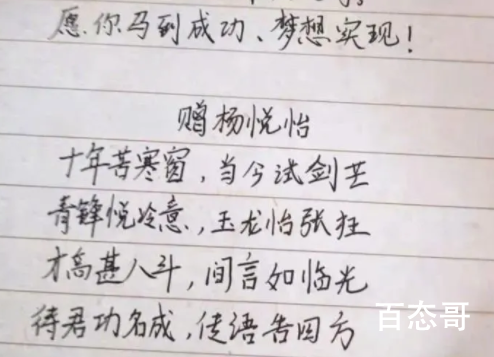 愿你马到成功、梦想实现!
赠杨悦怡
十年苦寒窗，当今试剑芒
青锋悦冷意，玉龙怡张狂
才高甚八斗，间言如临光
待君功名成，传语告四方
百态哥